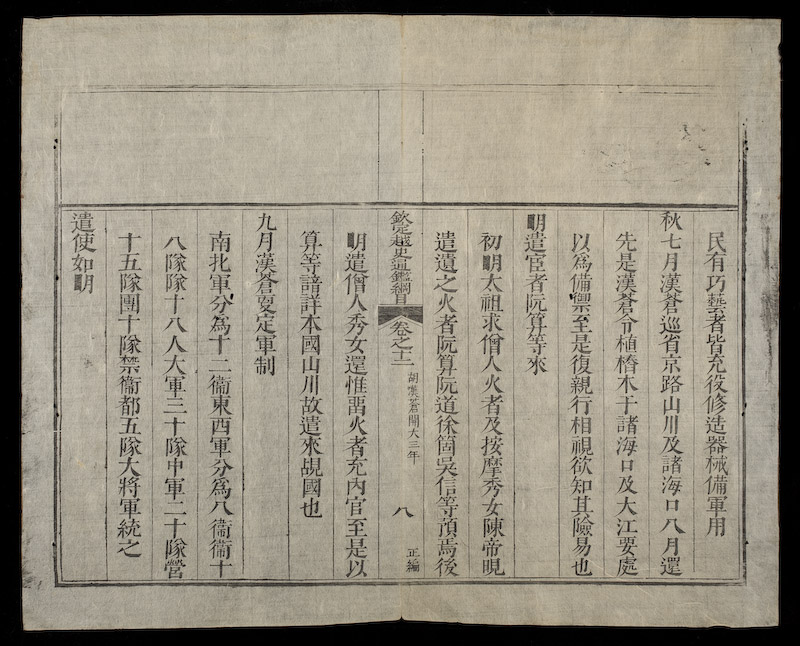 民有巧藝者皆充役修造器械備軍用
秋七月漢蒼巡省京路山川及諸海口八月還
先是漢蒼令植樁木于諸海口及大江要處
以爲備禦至是復親行相視欲知其險易也
明遣宦者阮算等來
初明太祖求僧人火者及按摩秀女陳帝晛
遣遺之火者阮算阮道徐箇吳信等預焉後
欽定越史通鑑綱目
卷之十二
胡漢蒼開大三年
八
正編
明遣僧人秀女還惟畱火者充內官至是以
算等諳詳本國山川故遣來覘國也
九月漢蒼更定軍制
南北軍分爲十二衞東西軍分爲八衞衞十
八隊隊十八人大軍三十隊中軍二十隊營
十五隊團十隊禁衞都五隊大將軍統之
遣使如明